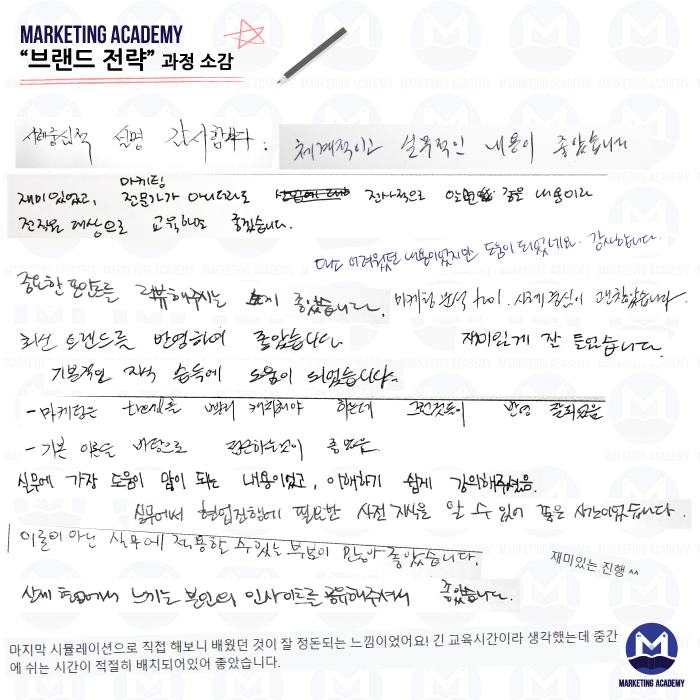 MARKETING ACADEMY
“브랜드 전략” 과정 소감
사례중심적 설명 감사합니다.
체계적이고 실무적인 내용이 좋았습니다
마케팅
재미있었고, 전문가가 아니더라도 전사적으로 좋은 내용이라
전직원 대상으로 교육해도 좋겠습니다.
다소 어려웠던 내용이었지만 도움이 되었네요. 감사합니다.
중요한 포인트를 리뷰해주시는 좋았습니다.
마케팅 분석 tool, 사례중심이 괜찮았습니다.
최신 트렌드를 반영하여 좋았습니다
재미있게 잔 들었습니다.
기본적인 지식 습득에 도움이 되었습니다.
- 마케팅은 trend를 빨리 캐치해야 하는데 그런것들이 반영 잘되었음
- 기본 이론을 바탕으로 접근하는것이 좋았음.
실무에 가장 도움이 많이 되는 내용이었고, 이해하기 쉽게 강의해주셨음.
실무에서 현업진행에 필요한 사전 지식을 알 수 있어 좋은 시간이었습니다.
이론이 아닌 실무에 적용할 수 있는 부분이 많아 좋았습니다.
재미있는 진행 ^^
실제 현업에서 느끼는 본인의 인사이트를 공유해주셔서 좋았습니다.
마지막 시뮬레이션으로 직접 해보니 배웠던 것이 잘 정돈되는 느낌이었어요! 긴 교육시간이라 생각했는데 중간
에 쉬는 시간이 적절히 배치되어있어 좋았습니다.
MARKETING ACADEMY